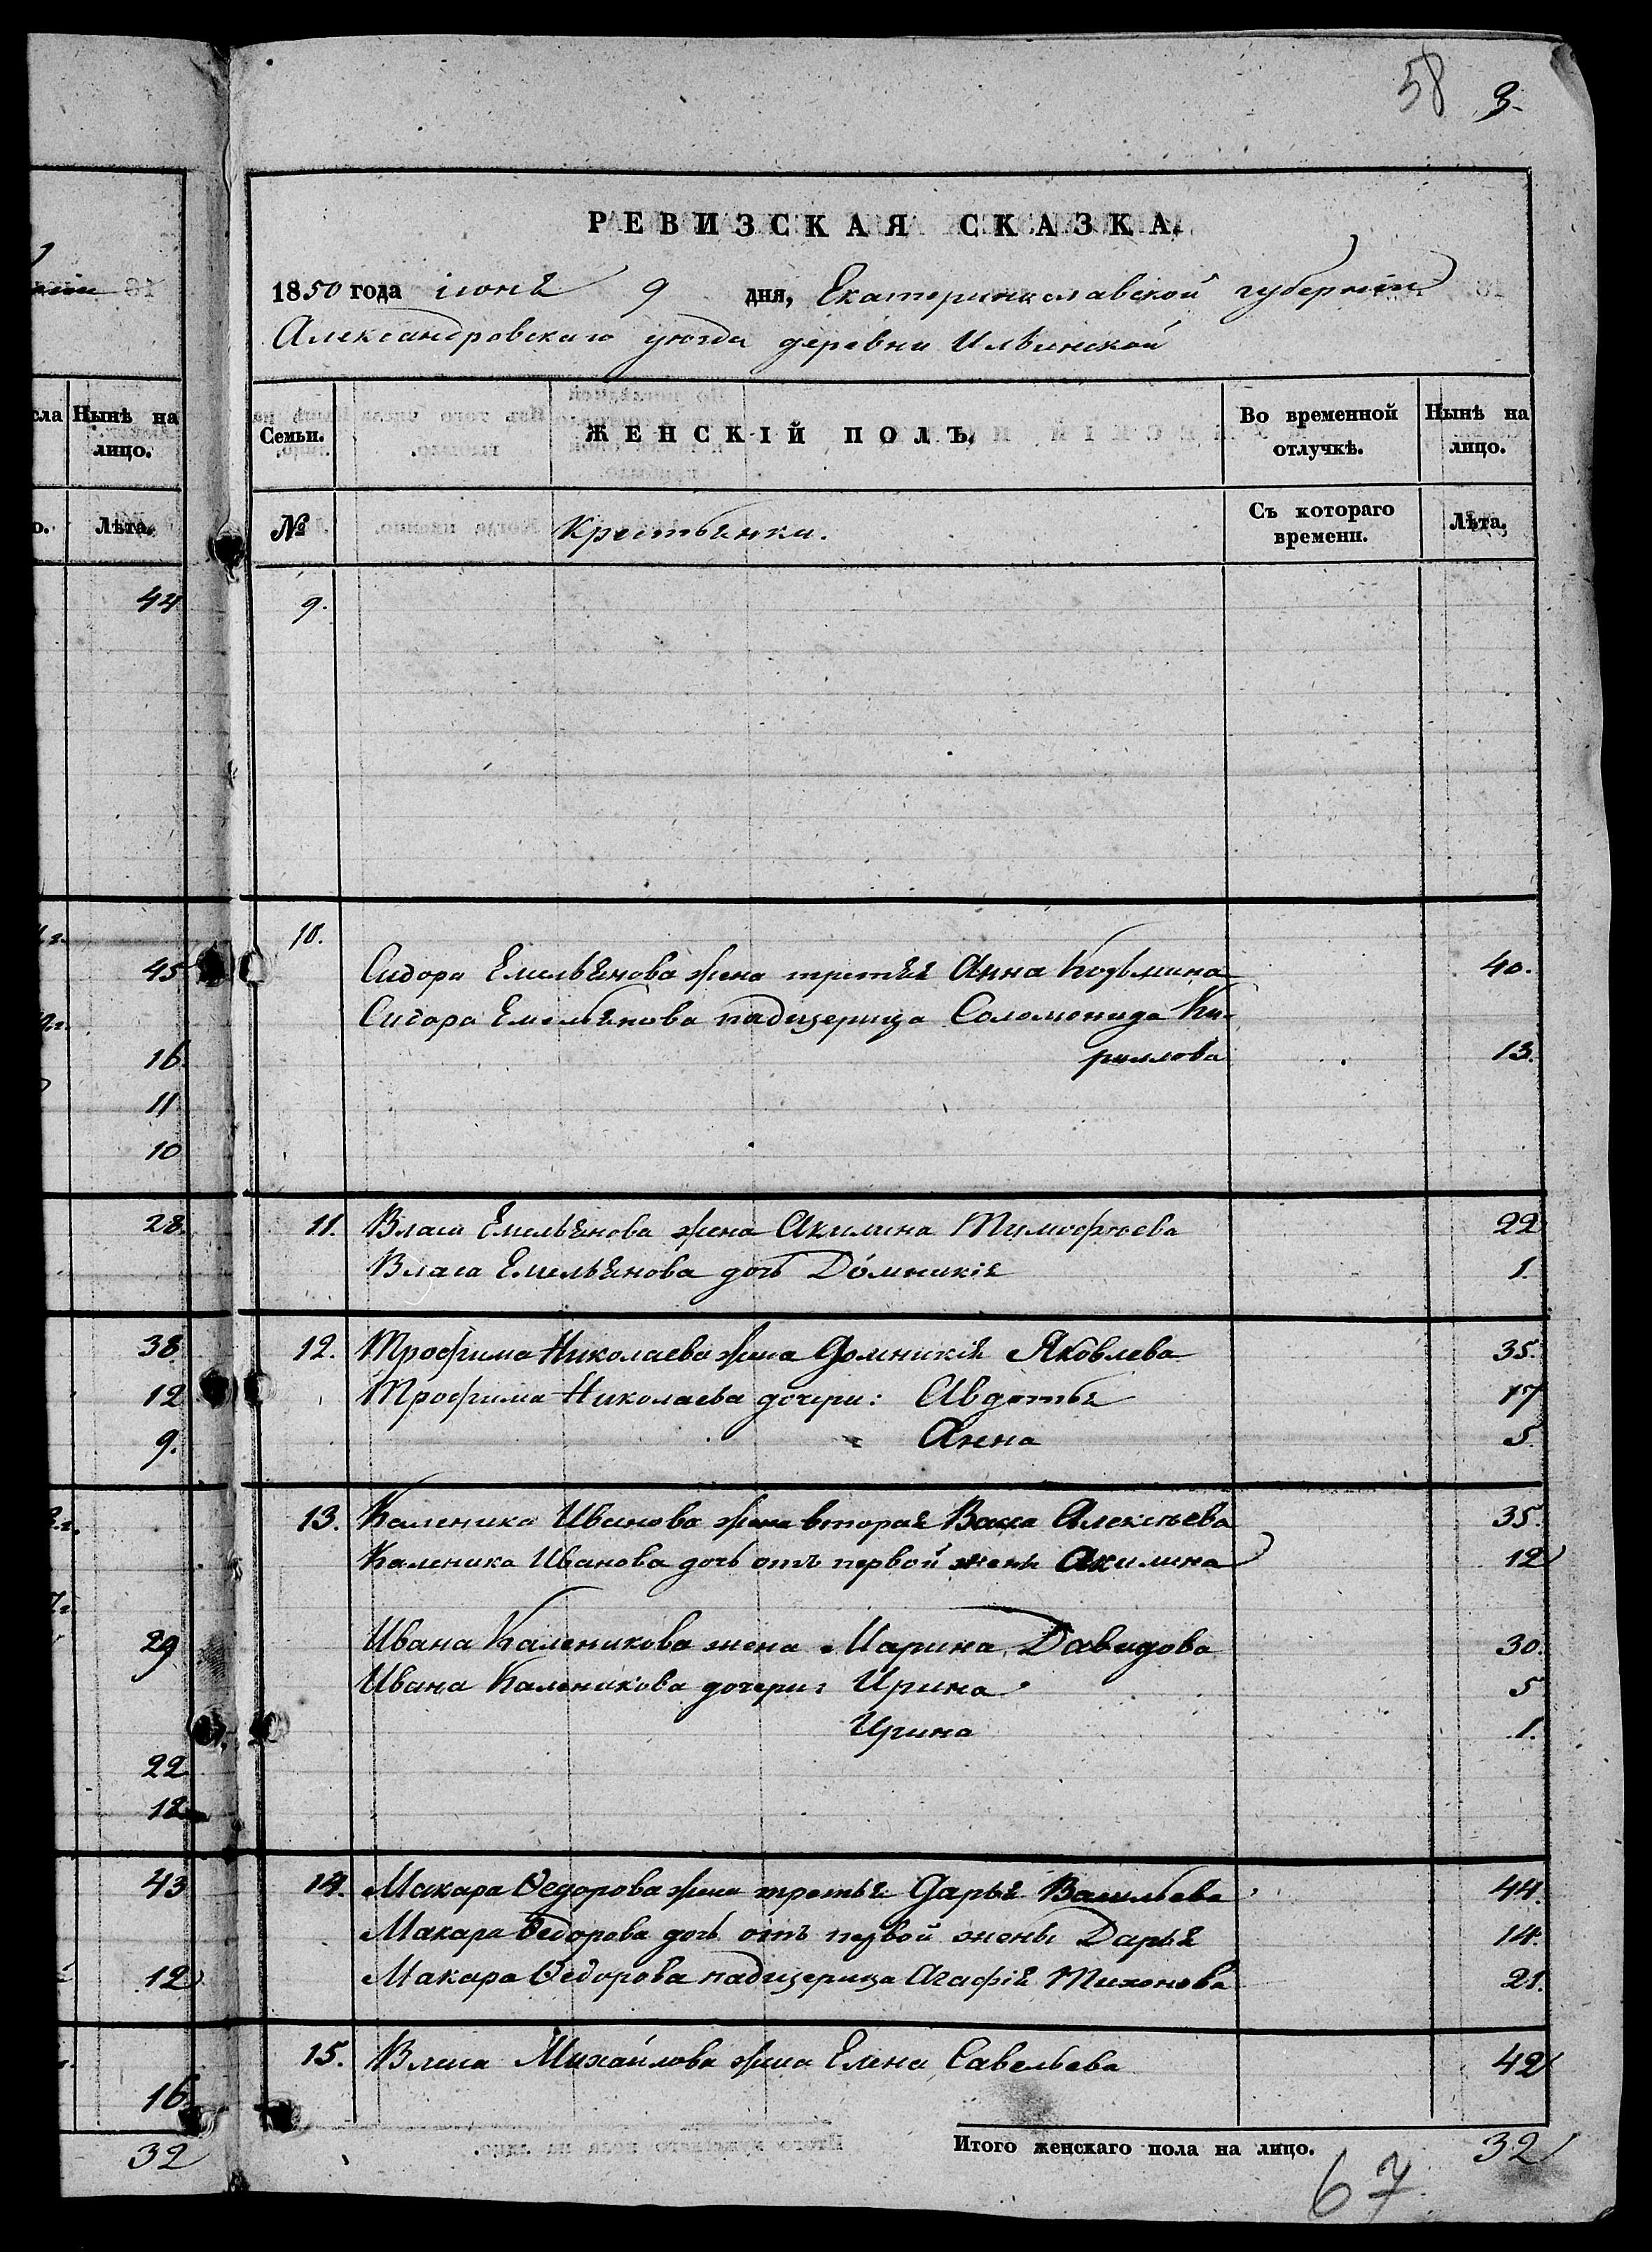 58 3.
РЕВИЗСКАЯ СКАЗКА,
1850 года іюня 9 дня, Екатеринославской губерніи
Александровскаго уѣзда деревни Ильинской
сла Нынѣ на лицо.
Лѣта.
44
45
16.
11
10
28.
38
12
9.
29
22
12
43
12
16.
32
Семьи. ЖЕНСКІЙ ПОЛЪ, Во временной отлучкѣ. Нынѣ на лицо.
№ Крестьянки. Съ котораго времени. Лѣта,
9.
10.
Сидора Емельянова жена третья Анна Козьмина 40.
Сидора Емельянова падщерица Соломонида Ки-
риллова 13.
11. Власа Емельянова жена Акилина Тимофѣева 22
Власа Емельянова дочь Домникія 1.
12. Трофима Николаева жена Домникія Яковлева 35.
Трофима Николаева дочери: Авдотья 17
Анна 5.
13. Каленика Иванова жена вторая Васса Алексѣева 35.
Каленика Иванова дочь отъ первой жены Акилина 12
Ивана Каленикова жена Марина Давидова 30.
Ивана Каленикова дочери: Ирина 5
Ирина 1.
14. Макара Ѳедорова жена третья Дарья Васильева 44.
Макара Ѳедорова дочь отъ первой жены Дарья 14.
Макара Ѳедорова падщерица Агафія Тихонова 21.
15. Власа Михайлова жена Елена Савельева 42
Итого женскаго пола на лицо. 32
67